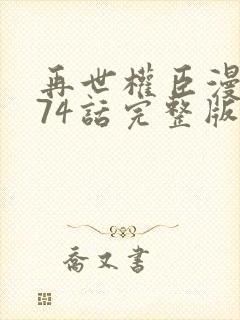 再世權臣漫
74話完整版
喬又書